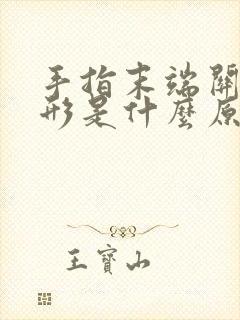 手指末端關
形是什麼原
王寶山